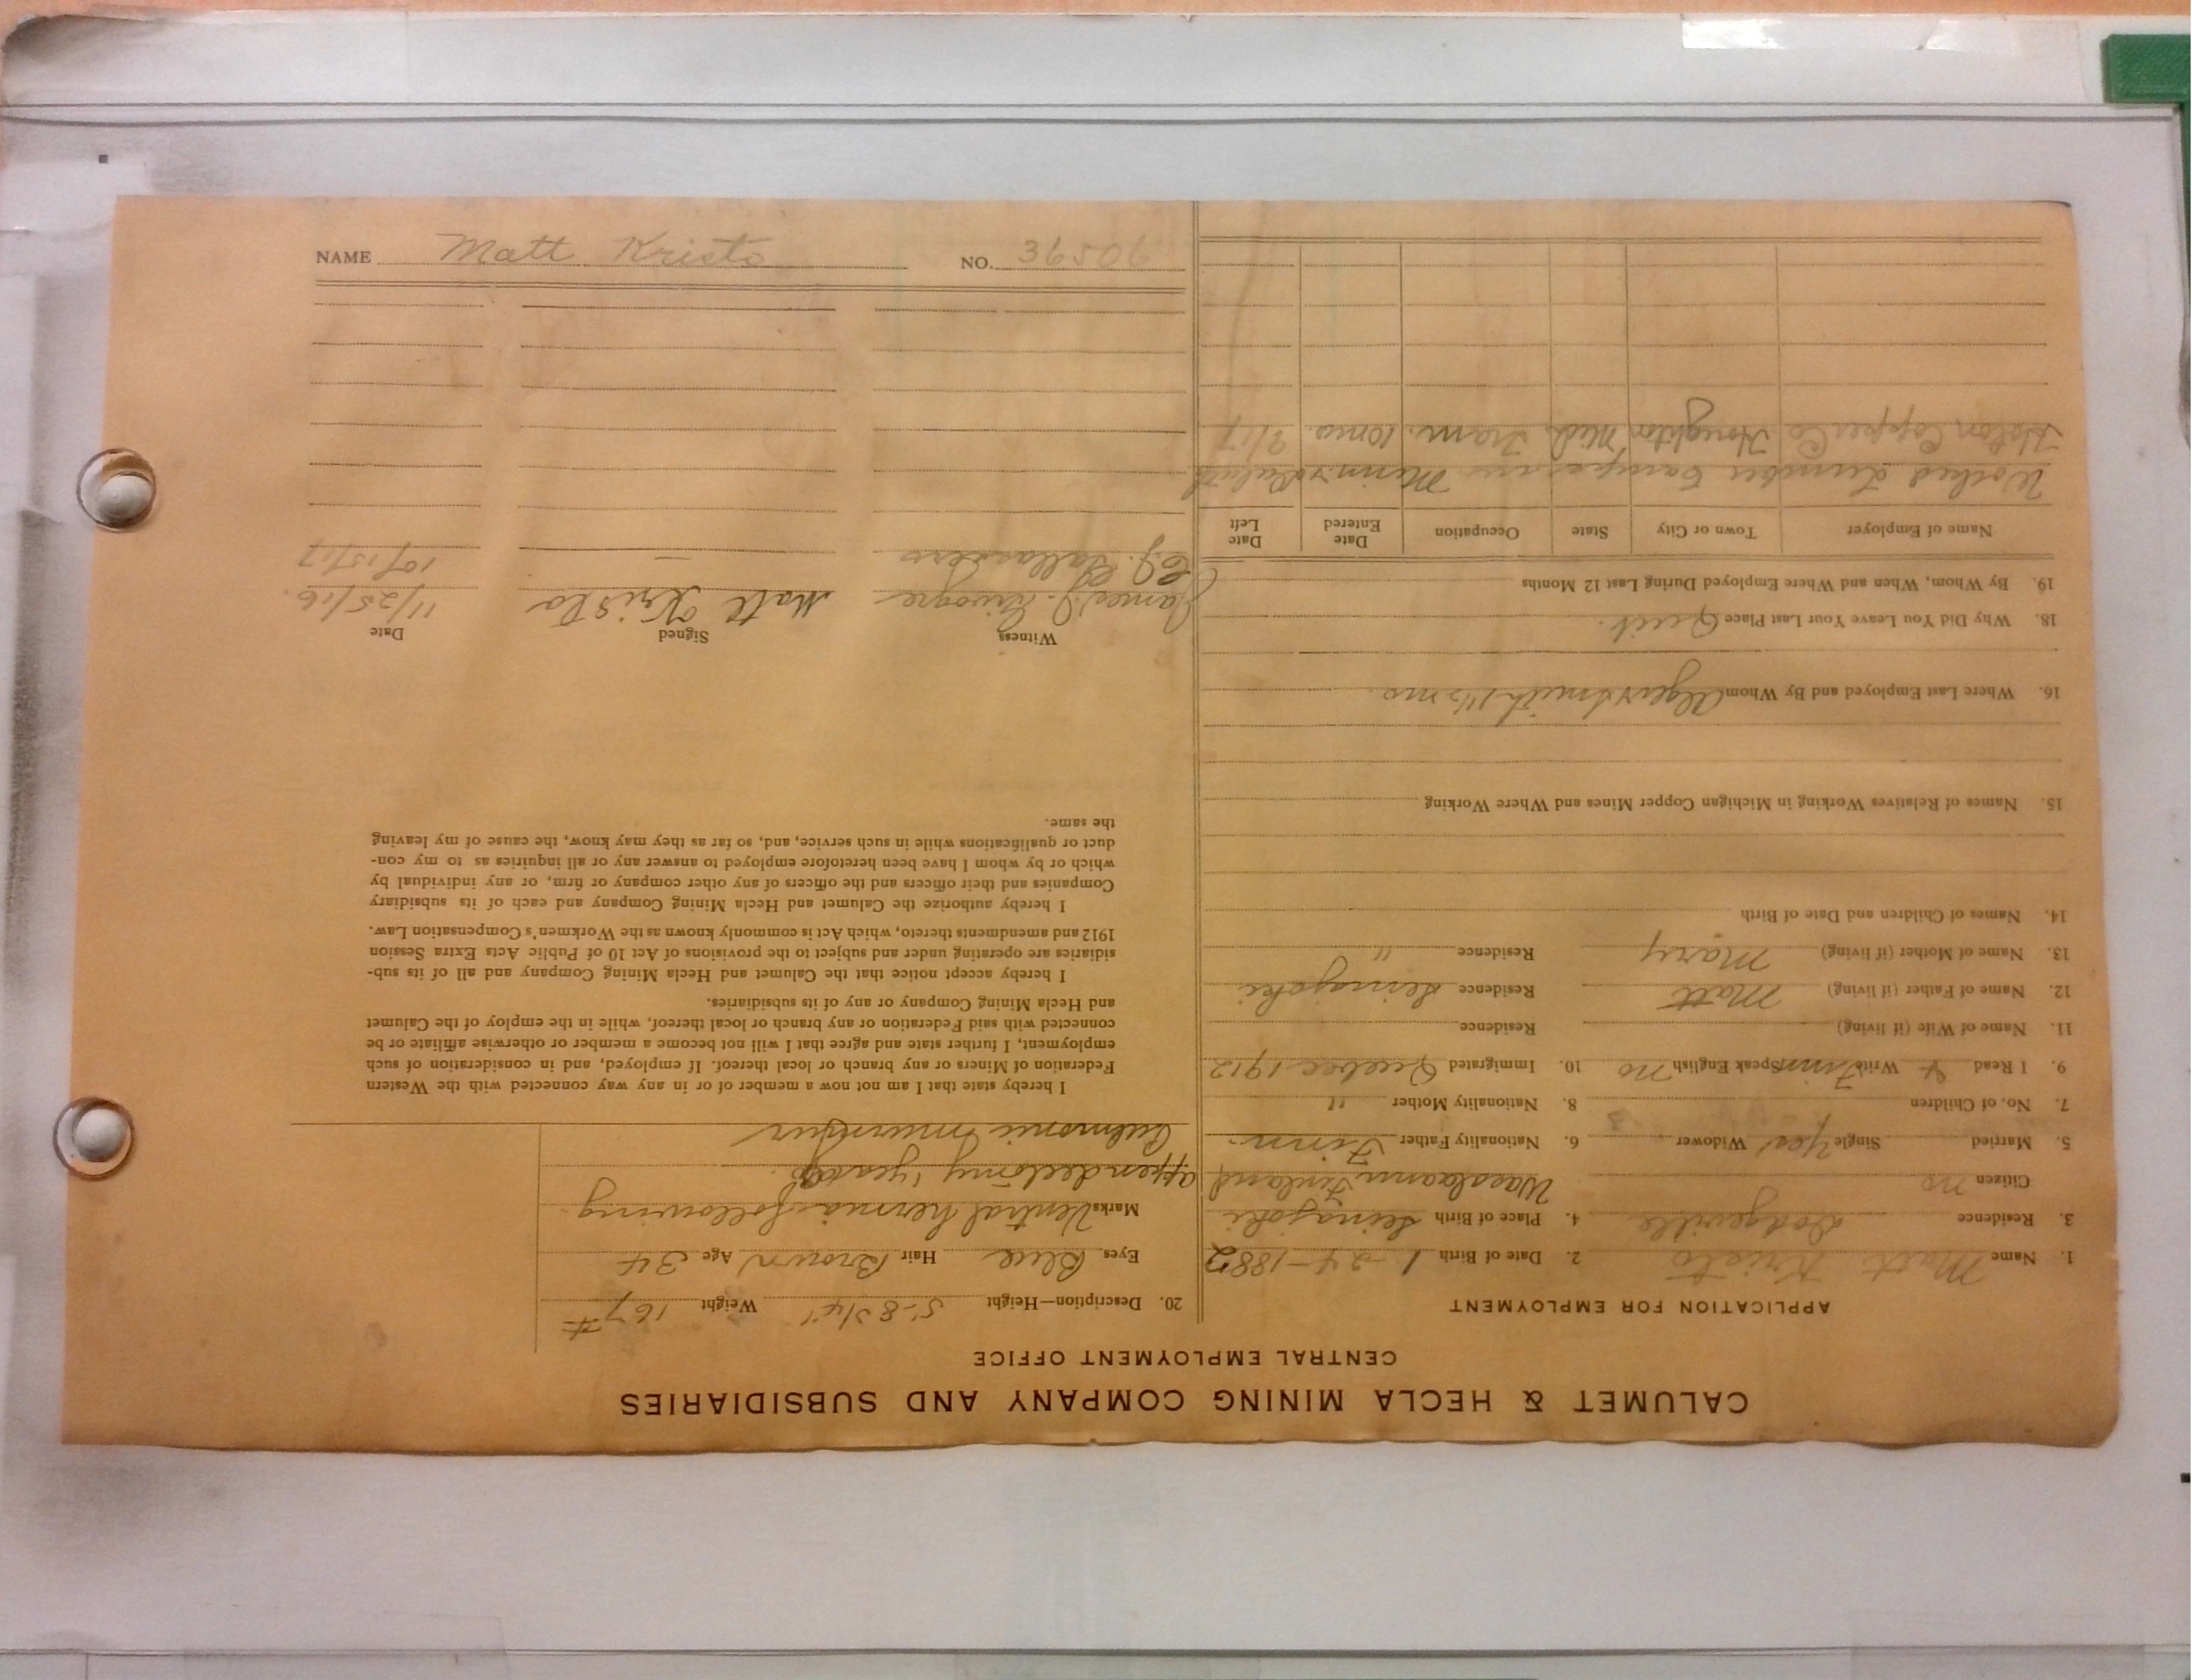 CALUMET & HECLA MINING COMPANY AND SUBSIDIARIES
CENTRAL EMPLOYMENT OFFICE
APPLICATION FOR EMPLOYMENT
1. Name Matt Kristo 2. Date of Birth 1-24-1882
3. Residence Dodgeville 4. Place of Birth Seinajoki
Citizen no Waeslaann Finland
5. Married Single Yes Widower 6. Nationality Father Finn.
7. No. of Children 8. Nationality Mother "
9. I Read & Write Finn Speak English no 10. Immigrated Quebec 1912
11. Name of Wife (if living) Residence
12. Name of Father (if living) Matt Residence Seinajoki
13. Name of Mother (if living) Mary Residence "
14. Names of Children and Date of Birth
15. Names of Relatives Working in Michigan Copper Mines and Where Working
16. Where Last Employed and By Whom Alger & Smith 1½ mo
18. Why Did You Leave Your Last Place Quit.
19. By Whom, When and Where Employed During Last 12 Months
Name of Employer Town or City State Occupation Date Entered Date Left
Worked Lumber Camps in Minn & Duluth
Copper Co Houghton Mich Tram. 10 mo. 9/17
20. Description—Height 5'-8 3/4" Weight 167#
Eyes Blue Hair Brown Age 34
Marks Ventral hernia following
appendectomy 1 year ago.
Pulmonic murmur
I hereby state that I am not now a member of or in any way connected with the Western
Federation of Miners or any branch or local thereof. If employed, and in consideration of such
employment, I further state and agree that I will not become a member or otherwise affiliate or be
connected with said Federation or any branch or local thereof, while in the employ of the Calumet
and Hecla Mining Company or any of its subsidiaries.
I hereby accept notice that the Calumet and Hecla Mining Company and all of its sub-
sidiaries are operating under and subject to the provisions of Act 10 of Public Acts Extra Session
1912 and amendments thereto, which Act is commonly known as the Workmen's Compensation Law.
I hereby authorize the Calumet and Hecla Mining Company and each of its subsidiary
Companies and their officers and the officers of any other company or firm, or any individual by
which or by whom I have been heretofore employed to answer any or all inquiries as to my con-
duct or qualifications while in such service, and, so far as they may know, the cause of my leaving
the same.
Witness Signed Date
James J. Matt Kristo 11/25/16.
10/15/17
NAME Matt Kristo NO. 36506